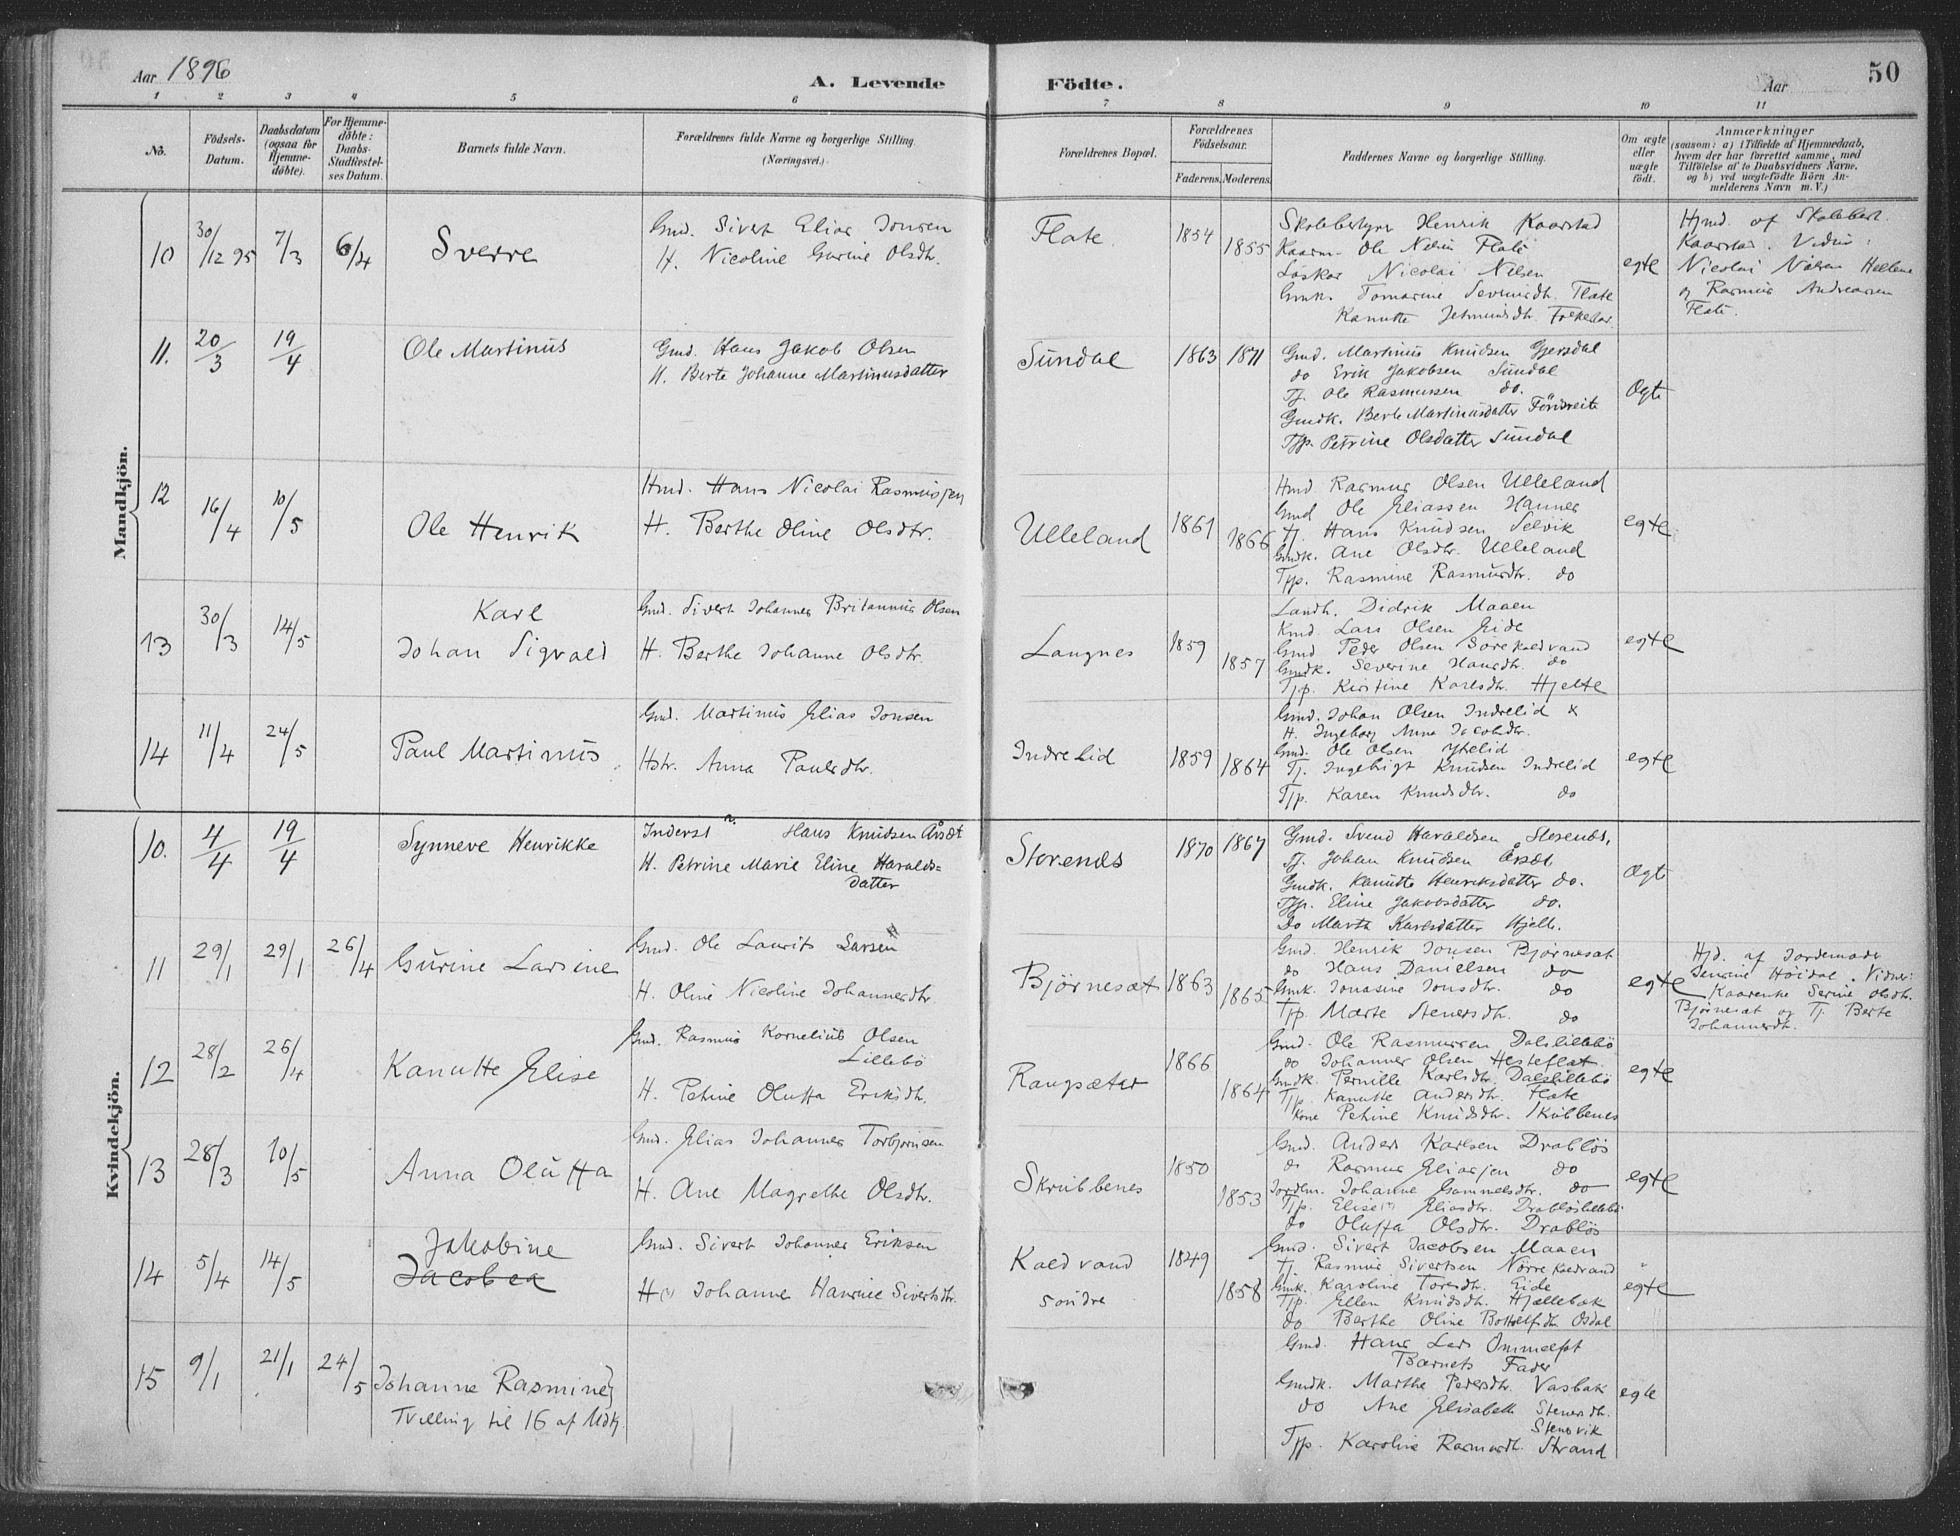 Aar 1896
A. Levende Födte.
Aar
50
1 2 3 4 5 6 7 8 9 10 11
No.
Födsels-Datum.
Daabsdatum (ogsaa for Hjemme-döbte).
For Hjemme-döbte: Daabs-Stadfæstel-ses Datum.
Barnets fulde Navn.
Forældrenes fulde Navne og borgerlige Stilling. (Næringsvei.)
Forældrenes Bopæl.
Forældrenes Födselsaar.
Faderens. Moderens.
Faddernes Navne og borgerlige Stilling.
Om ægte eller uægte födt.
Anmærkninger
(saasom: a) i Tilfælde af Hjemmedaab, hvem der har forrettet samme, med Tilföielse af to Daabsvidners Navne, og b) ved uægtefödte Börn An-melderens Navn m. V.)
Mandkjön.
10 30/12 95 7/3 6/4 Sverre
Gmd. Sivert Elias Jonsen
H. Nicoline Gurine Olsdtr.
Flate 1854 1855
Skolebestyrer Henrik Kaarstad
Kaarm. Ole Nilsen Flate
Löskar Nicolai Nilsen
Gmk. Tomarine Severinsdtr. Flate
Kanutte Jetmundsdtr.
egte
Hjmd. af Skolebest.
Kaarstad. Vidner:
Nicolai Nilsen
og Rasmus Andreassen
Flate.
11. 20/3 19/4 Ole Martinus
Gmd. Hans Jakob Olsen
H. Berte Johanne Martinusdatter
Sundal 1863 1871
Gmd. Martinus Knudsen Gjersdal
do Erik Jakobsen Sundal
Tj. Ole Rasmussen do.
Gmdk. Berte Martinusdatter
Tjp. Petrine Olsdatter Sundal
Ægte
12 16/4 10/5 Ole Henrik
Hmd. Hans Nicolai Rasmussen
H. Berthe Oline Olsdtr.
Ulleland 1861 1866
Hmd. Rasmus Olsen Ulleland
Gmd Ole Eliassen Hannes
Tj. Hans Knudsen Selvik
Gmdk. Ane Olsdtr. Ulleland
Tjp. Rasmine Rasmusdtr. do
egte
13 30/3 14/5 Karl
Johan Sigvald
Gmd. Sivert Johannes Britannus Olsen
H. Berthe Johanne Olsdtr.
Langnes 1859 1857
Landh. Didrik Maaen
Kmd. Lars Olsen Eide
Gmd Peder Olsen Sörekoldvand
Gmdk. Severine Hansdtr. do
Tjp. Kirstine Karlsdtr. Hjelle
egte
14 11/4 24/5 Paul Martinus
Gmd. Martinus Elias Jonsen
Hstr. Anna Paulsdtr.
Indre Lid 1859 1864
Gmd. Johan Olsen Indrelid &
H. Ingeborg Anna Jacobdtr.
Gmd. Ole Olsen Ytrelid
Tj. Ingebrigt Knudsen Indrelid
Tjp. Karen Knudsdtr. do
egte
Kvindekjön.
10. 4/4 19/4 Synneve Henrikke
Inderst Hans Knudsen Årsæt
H. Petrine Marie Eline Haralds=
datter
Storenes 1870 1867
Gmd. Svend Haraldsen Storenes,
Tj. Johan Knudsen Årsæt,
Gmdk. Kanutte Henriksdatter do.
Tjp. Eline Jakobsdatter do.
Do Marta Karlsdatter Hjelle.
Ægte
11 29/1 29/1 26/4 Gurine Larsine
Gmd. Ole Laurits Larsen
H. Oline Nicoline Johannesdtr.
Bjørnesæt 1863 1865
Gmd. Henrik Jonsen Bjørnesæt
do Hans Danielsen do
Gmk. Jonasine Jonsdtr. do
Tjp. Marte Stenersdtr. do
egte
Hjd. af Jordemoder
Höidal. Vidner:
Serine Olsdtr.
Bjørnesæt og Tj. Berte
Johannesdtr.
12 28/2 26/4 Kanutte Elise
Gmd. Rasmus Kornelius Olsen
Lillebö
H. Petrine Oluffa Eriksdtr.
Rangsæter 1866 1864
Gmd. Ole Rasmussen Dalslillebö
do Johannes Olsen Hesteflot
Gmdk. Pernille Karlsdtr. Dalslillebö
Tjp. Kanutte Andersdtr. Flate
Kone Petrine Knudsdtr. Skubbenes
egte
13 28/3 10/5 Anna Oluffa
Gmd. Elias Johannes Torbjornsen
H. Ane Magrethe Olsdtr.
Skrubbenes 1850 1853
Gmd. Anders Karlsen Drabløs
do Rasmus Eliassen do
Jordm. Johanne Gammelsdtr. do
Tjp. Elise Eliasdtr. Drabløslillebö
do Oluffa Olsdtr. Drabløs
egte
14 5/4 14/5 Jakobine
Jacobea
Gmd. Sivert Johannes Eriksen
H. Johanne Hansine Sivertsdtr.
Koldvand
söndre 1849 1858
Gmd. Sivert Jacobsen Maaen
Tj. Rasmus Sivertsen Nörre Koldvand
Gmk. Karoline Toresdtr. Eide
Tjp. Ellen Knudsdtr. Hjællebæk
do Berthe Oline Bottolfsdtr. Osdal
egte
15 9/1 21/1 24/5 Johanne Rasmine
Tvilling til 16 af Mdkj.
Gmd. Hans Lars Ommelset
Barnets Fader
Gmdk. Marthe Pedersdtr. Vasbak
do Ane Elisabeth Stenersdtr.
Stensvik
Tjp. Karoline Rasmusdtr. Strand
egte